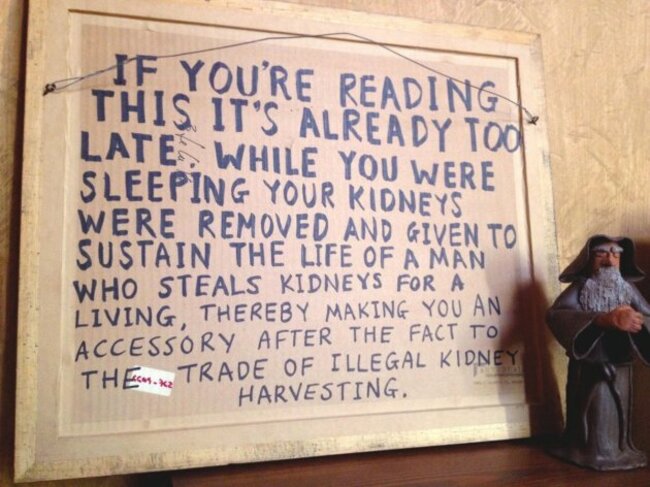 IF YOU'RE READING
THIS IT'S ALREADY TOO
LATE. WHILE YOU WERE
SLEEPING YOUR KIDNEYS
WERE REMOVED AND GIVEN TO
SUSTAIN THE LIFE OF A MAN
WHO STEALS KIDNEYS FOR A
LIVING, THEREBY MAKING YOU AN
ACCESSORY AFTER THE FACT TO
THE TRADE OF ILLEGAL KIDNEY
HARVESTING.